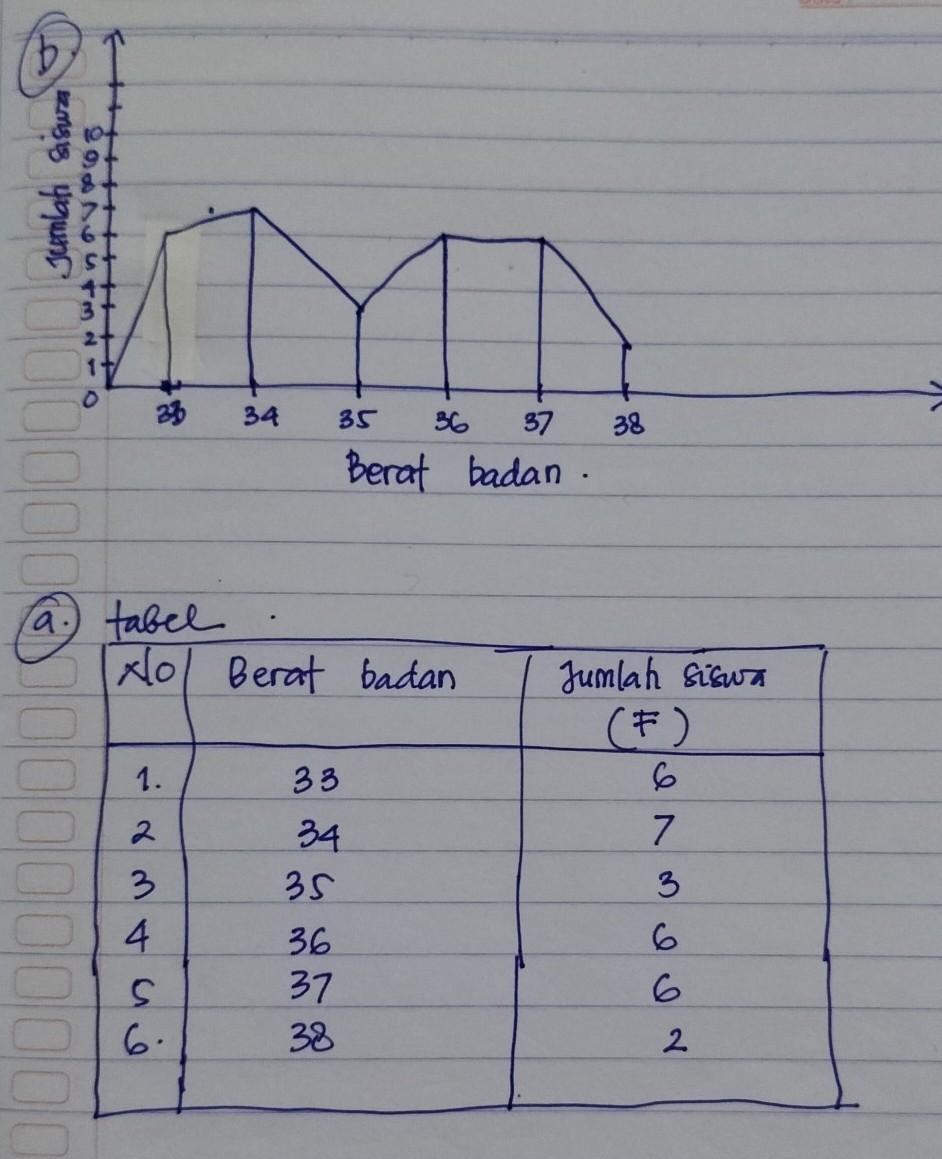 b.
Jumlah siswa
8
9
8
7
6
5
4
3
2
1
0
33 34 35 36 37 38
Berat badan .
a. tabel .
No Berat badan Jumlah siswa
(F)
1. 33 6
2 34 7
3 35 3
4 36 6
5 37 6
6. 38 2